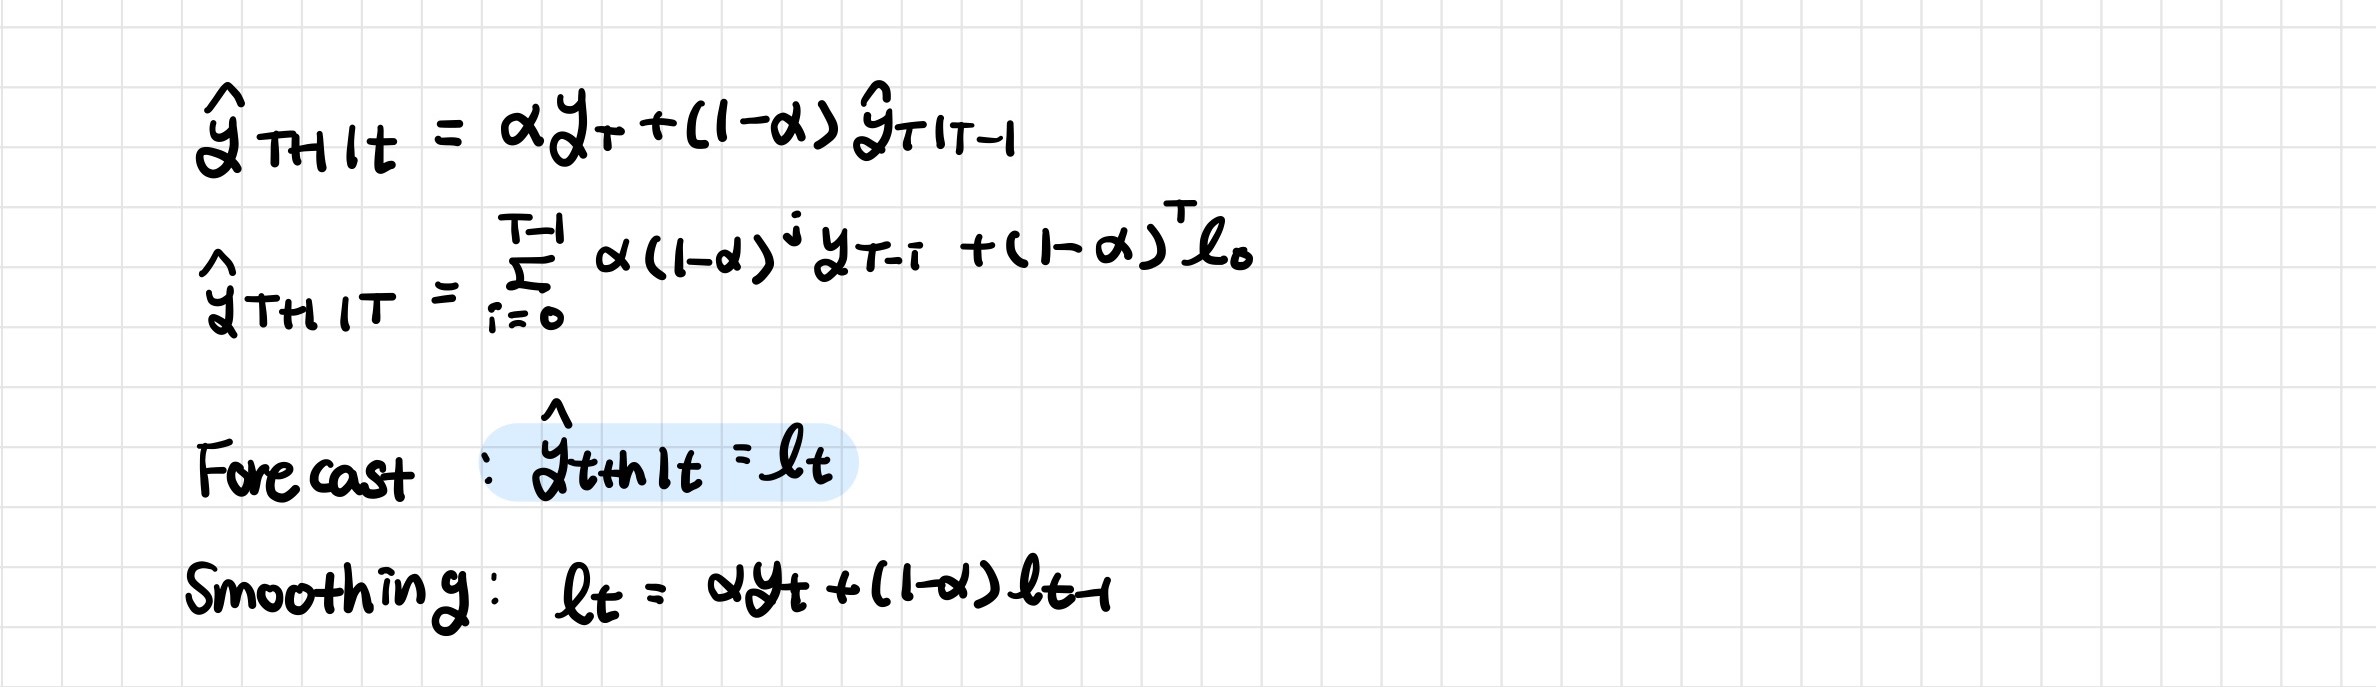 ŷ_{T+1|t} = αy_T + (1-α) ŷ_{T|T-1}
ŷ_{T+1|T} = Σ_{i=0}^{T-1} α(1-α)^j y_{T-i} + (1-α)^T l_0
Forecast : ŷ_{t+h|t} = l_t
Smoothing : l_t = αy_t + (1-α) l_{t-1}